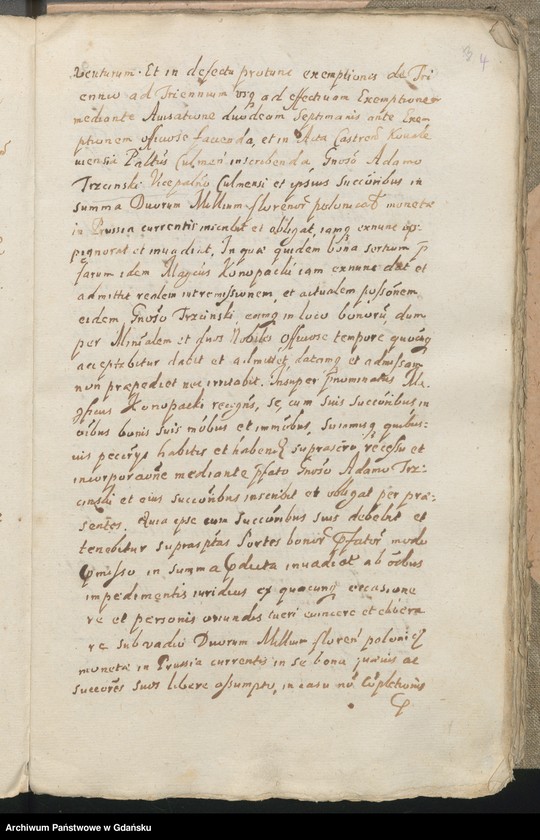 3 4
venturum. Et in defectu protunc exemptionis de Tri
ennio ad Triennium usq ad effectivam Exemptionem
mediante Avisatione duodecem Septimanis ante Exem
ptionem officiose facienda, et in Acta Castren Kovale
viensia Pallus Culmen inscribenda Gnoso Adamo
Trzcinski Vicepalno Culmensi et ipsius Succoribus in
summa Duorum Millium florenor polonical monetæ
in Prussia currentis inscribit et obligat, iamq exnunc
pignorat et invadiat, In quæ quidem bona sortium
farum idem Magcus Konopacki iam exnunc dat et
admittit realem intromissionem, et actualem possonem
eidem Gnoso Trzcinski eamq in loco bonorū, dum
per Ministralem et duos Nobiles officiose tempore quocunq
acceptabitur dabit et admittet, datamq et admissam
non præpediet nec irritabit. Insuper prnominatus Ma
gficus Konopacki recogns, se, cum suis Succoribus in
oibus bonis suis mobus et immobus, summisq quibus
vis pecuniys habitis et haben suprascro, recessu et
incorporaone mediante pfato Gnoso Adamo Trz-
cinski et eius succoribus inscribit et obligat per præ-
sentes. Quia ipse cum Succoribus suis debebit et
tenebitur suprasptas Sortes bonor pfator modo
pmisso in summa pdicta invadiat ab oibus
impedimentis iuridicis ex quacunq occasione
re et personis oriundis tueri evincere et libera
re sub vadio Duorum Millium floren polonical
monetæ in Prussia currentis in se bona ac
succores suos libere assumpto, in casu nō cōpletionis
Archiwum Państwowe w Gdańsku